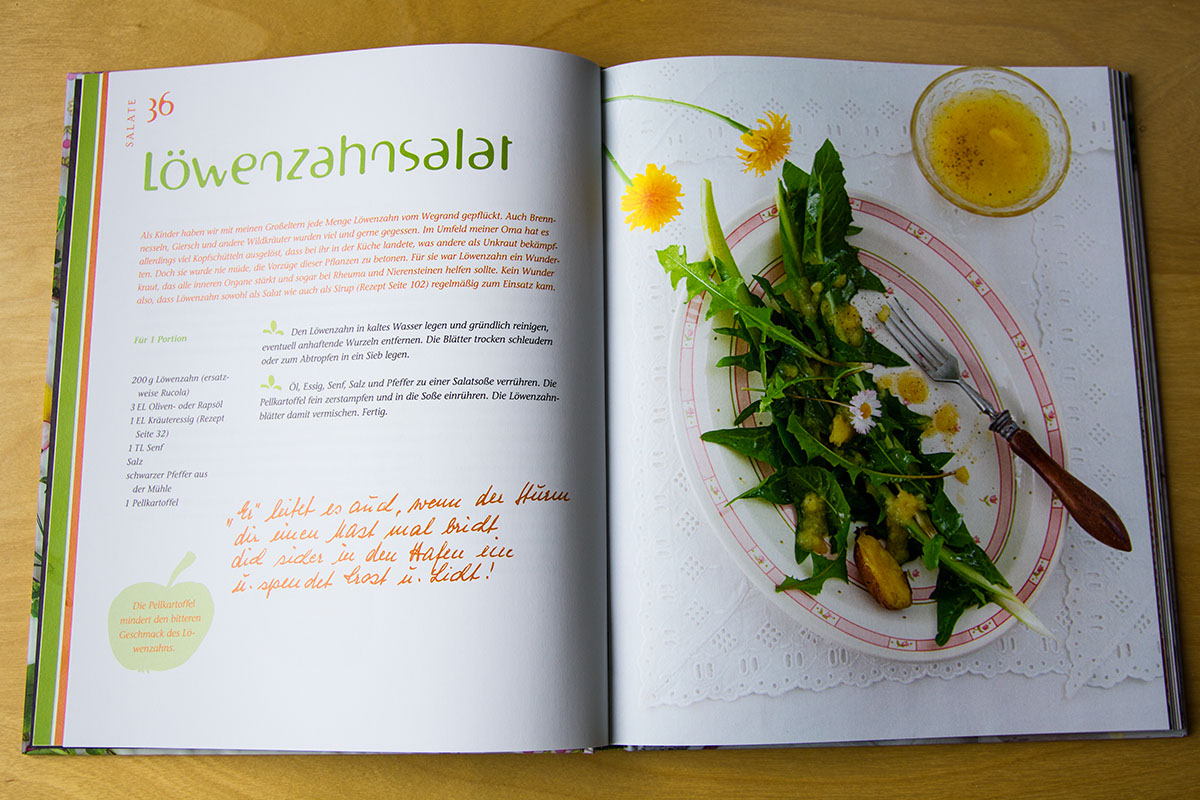 SALATE
36
Löwenzahnsalat
Als Kinder haben wir mit meinen Großeltern jede Menge Löwenzahn vom Wegrand gepflückt. Auch Brenn-
nesseln, Giersch und andere Wildkräuter wurden viel und gerne gegessen. Im Umfeld meiner Oma hat es
allerdings viel Kopfschütteln ausgelöst, dass bei ihr in der Küche landete, was andere als Unkraut bekämpf-
ten. Doch sie wurde nie müde, die Vorzüge dieser Pflanzen zu betonen. Für sie war Löwenzahn ein Wunder-
kraut, das alle inneren Organe stärkt und sogar bei Rheuma und Nierensteinen helfen sollte. Kein Wunder
also, dass Löwenzahn sowohl als Salat wie auch als Sirup (Rezept Seite 102) regelmäßig zum Einsatz kam.
Für 1 Portion
200 g Löwenzahn (ersatz-
weise Rucola)
3 EL Oliven- oder Rapsöl
1 EL Kräuteressig (Rezept
Seite 32)
1 TL Senf
Salz
schwarzer Pfeffer aus
der Mühle
1 Pellkartoffel
Den Löwenzahn in kaltes Wasser legen und gründlich reinigen,
eventuell anhaftende Wurzeln entfernen. Die Blätter trocken schleudern
oder zum Abtropfen in ein Sieb legen.
Öl, Essig, Senf, Salz und Pfeffer zu einer Salatsoße verrühren. Die
Pellkartoffel fein zerstampfen und in die Soße einrühren. Die Löwenzahn-
blätter damit vermischen. Fertig.
„Er" leitet es auch, wenn der Sturm
dir einen Mast mal bricht
dich sicher in den Hafen ein
u. spendet Trost u. Licht!
Die Pellkartoffel
mindert den bitteren
Geschmack des Lö-
wenzahns.